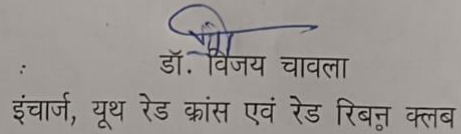 डॉ. विजय चावला
इंचार्ज, यूथ रेड क्रांस एवं रेड रिबन क्लब